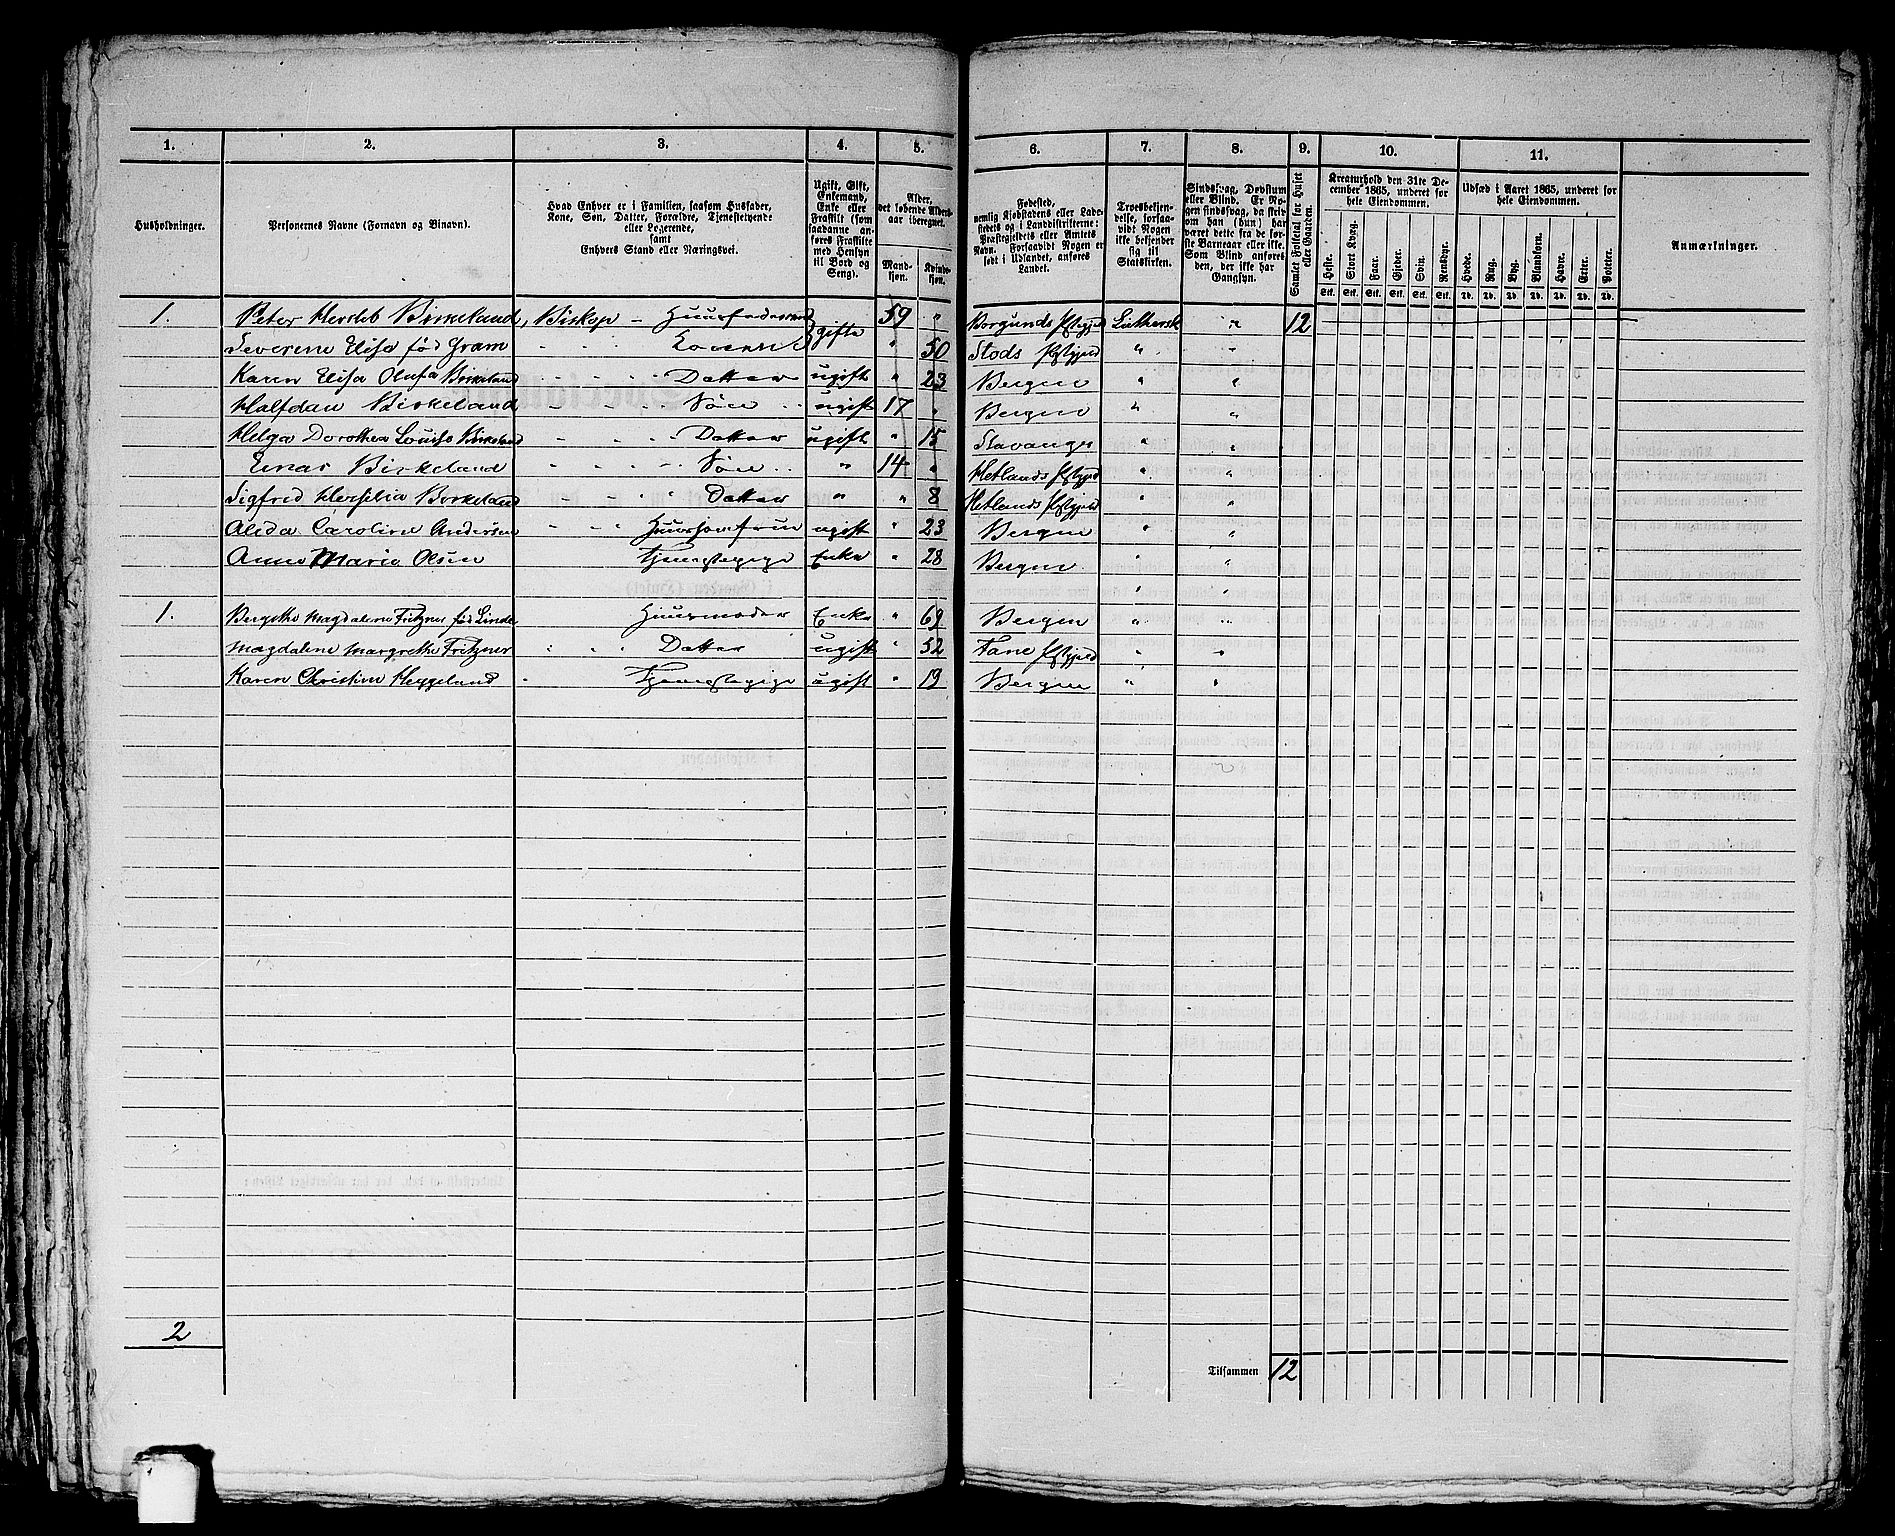 1. 2. 3. 4. 5. 6. 7. 8. 9. 10. 11.
Husholdninger.
Personernes Navne (Fornavn og Binavn).
Hvad Enhver er i Familien, saasom Husfader,
Kone, Søn, Datter, Forældre, Tjenestetyende
eller Logerende,
samt
Enhvers Stand eller Næringsvei.
Ugift, Gift,
Enkemand,
Enke eller
Fraskilt (som
saadanne an-
føres Fraskilte
med Hensyn
til Bord og
Seng).
Alder,
det løbende Alders-
aar iberegnet.
Mand-
kjøn.
Kvinde-
kjøn.
Fødested,
nemlig Kjøbstadens eller Lade-
stedets og i Landdistrikterne:
Præstegjeldets eller Amtets
Navn. Forsaavidt Nogen er
født i Udlandet, anføres
Landet.
Troesbekjen-
delse, forsaa-
vidt Nogen
ikke bekjender
sig til
Statskirken.
Sindssvag, Døvstum
eller Blind. Er No-
gen sindssvag, da skriv
om han (hun) har
været dette fra de før-
ste Barneaar eller ikke.
Som Blind anføres
den, der ikke har
Gangsyn.
Samlet Folketal for Huset
eller Gaarden.
Kreaturhold den 31te De-
cember 1865, underet for
hele Eiendommen.
Heste. Stort Kvæg. Faar. Gjeder. Svin. Rensdyr.
Stk. Stk. Stk. Stk. Stk. Stk.
Udsæd i Aaret 1865, underet for
hele Eiendommen.
Hvede. Rug. Byg. Blandkorn. Havre. Erter. Poteter.
Td. Td. Td. Td. Td. Td. Td.
Anmærkninger.
1. Peter Hersleb Birkeland, Biskop - Huusfader gifte 59 " Borgunds Luthersk " 12
Severene Elisa fød Gram - - - " 50 Stods " "
Karen Elisa Olufa Birkeland - - - Datter ugift " 23 Bergen " "
Halfdan Birkeland - - - Søn ugift 17 " Bergen " "
Helga Dorothea Louise Birkeland - - - Datter ugift " 15 Stavanger " "
Einar Birkeland - - - Søn " 14 " Hetlands " "
Sigfrid Hersilia Birkeland - - - Datter " " 8 Hetlands " "
Alida Caroline Andersen " " " Huusjomfrue ugift " 23 Bergen " "
Anne Marie Olsen Tjenestepige Enke " 28 Bergen " "
1. Bergithe Magdalene Fritzner fød Linde Huusmoder Enke " Bergen " "
Magdalene Margrethe Fritzner - - - Datter ugift " 52 Fane " "
Karen Christine Heggeland - Tjenestepige ugift " 19 Bergen " "
2
Tilsammen 12